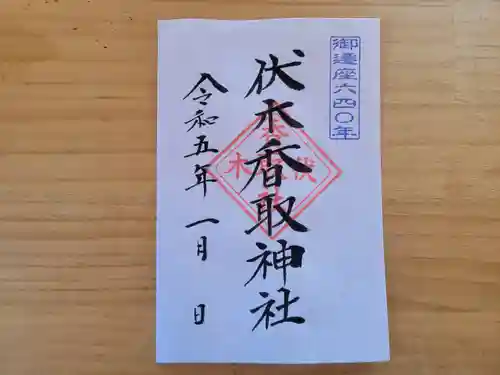 御遷座六四〇年
伏木香取神社
令和五年一月 日